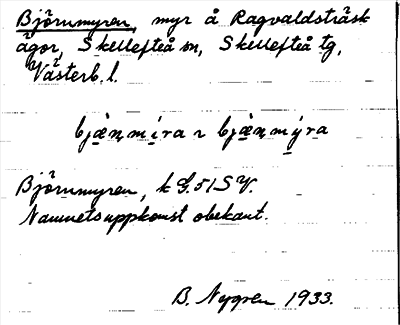 Björnmyren, myr å Ragvaldsträsk
ägor, Skellefteå sn, Skellefteå tg,
Västerb. l.
bjæ̀ṇmíra ~ bjæ̀ṇmýra
Björnmyren, k G.51 SV.
Namnets uppkomst obekant.
B. Nygren 1933.